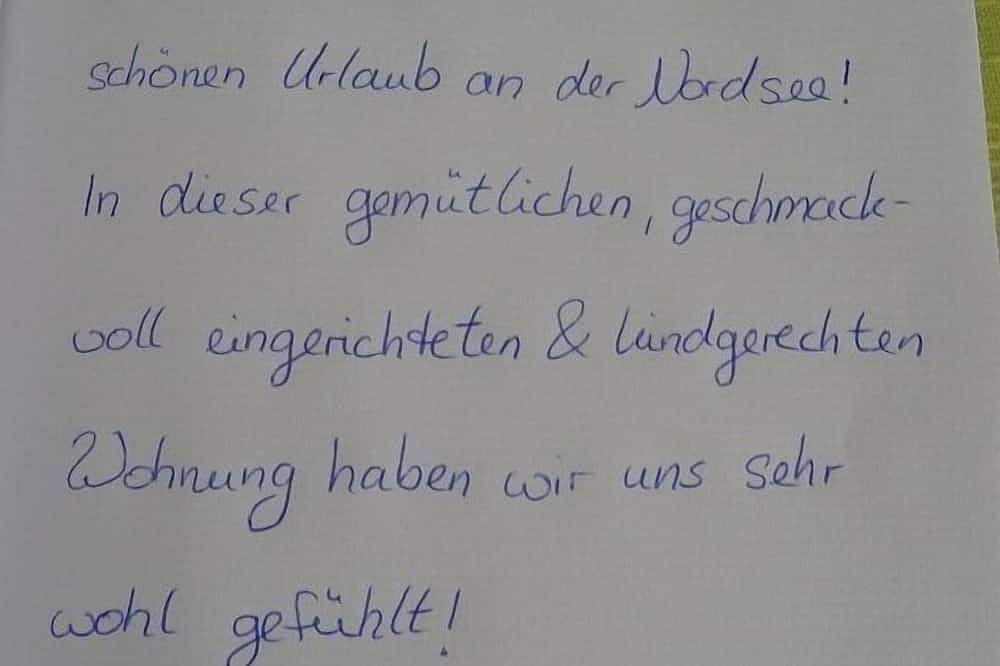 schönen Urlaub an der Nordsee!
In dieser gemütlichen, geschmack-
voll eingerichteten & kindgerechten
Wohnung haben wir uns sehr
wohl gefühlt!